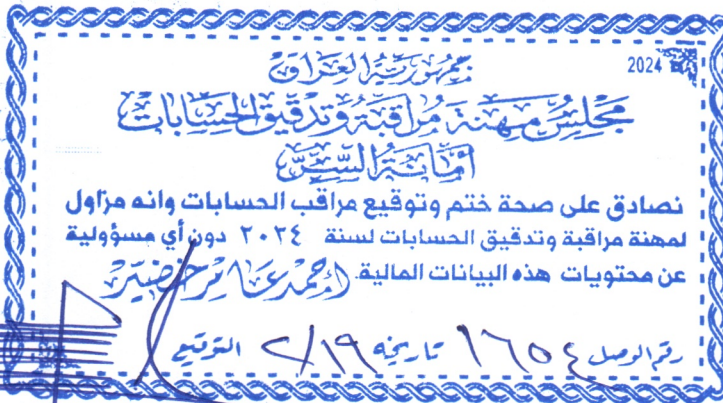 2024
جمهورية العراق
مجلس مهنة مراقبة وتدقيق الحسابات
أمانة السر
نصادق على صحة ختم وتوقيع مراقب الحسابات وانه مزاول
لمهنة مراقبة وتدقيق الحسابات لسنة ٢٠٢٤ دون أي مسؤولية
عن محتويات هذه البيانات المالية. احمد عامر خضير
رقم الوصل ١٦٥٤ تاريخه ٢/١٩ التوقيع